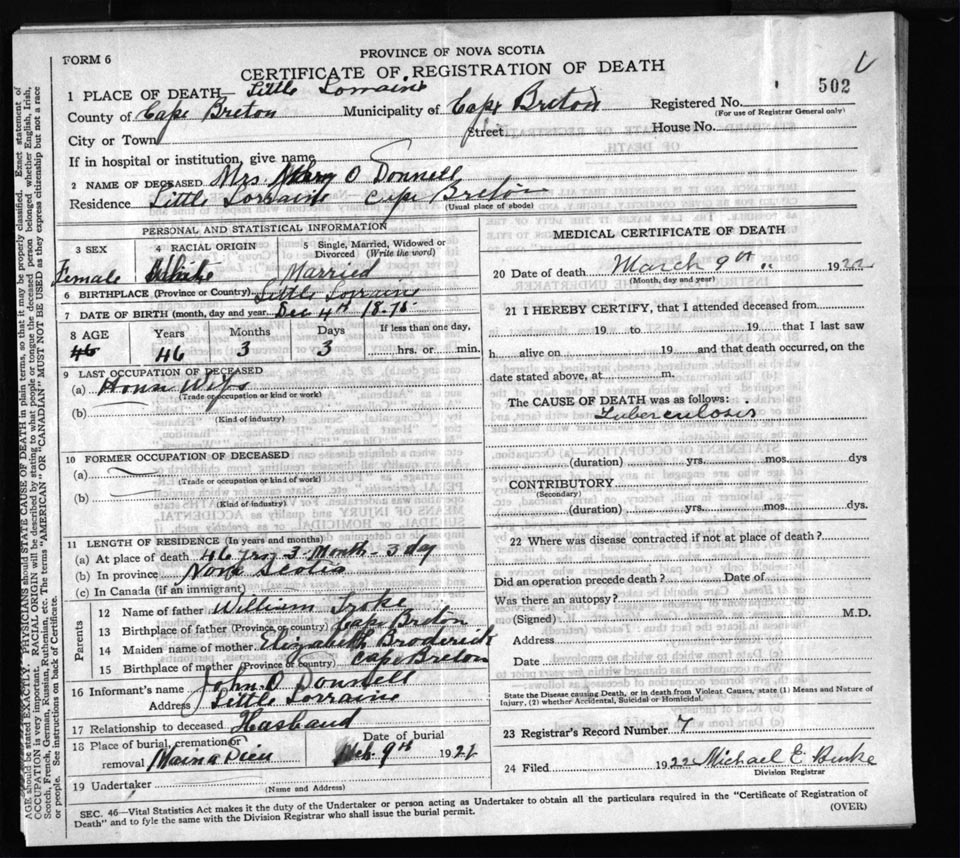 FORM 6
PROVINCE OF NOVA SCOTIA
CERTIFICATE OF REGISTRATION OF DEATH
502
1 PLACE OF DEATH— Little Lorraine
County of Cape Breton Municipality of Cape Breton Registered No.
(For use of Registrar General only)
City or Town Street House No.
If in hospital or institution, give name
2 NAME OF DECEASED Mrs Mary O Donnell
Residence Little Lorraine Cape Breton
(Usual place of abode)
PERSONAL AND STATISTICAL INFORMATION
3 SEX 4 RACIAL ORIGIN 5 Single, Married, Widowed or Divorced (Write the word)
Female White Married
6 BIRTHPLACE (Province or Country) Little Lorraine
7 DATE OF BIRTH (month, day and year) Dec 4th 1875
8 AGE Years Months Days If less than one day,
46 46 3 3 hrs. or min.
9 LAST OCCUPATION OF DECEASED
(a) House Wife
(Trade or occupation or kind or work)
(b)
(Kind of industry)
10 FORMER OCCUPATION OF DECEASED
(a)
(Trade or occupation or kind of work)
(b)
(Kind of industry)
11 LENGTH OF RESIDENCE (In years and months)
(a) At place of death 46 yrs 3 Month - 3 day
(b) In province Nova Scotia
(c) In Canada (if an immigrant)
Parents
12 Name of father William
13 Birthplace of father (Province or country) Cape Breton
14 Maiden name of mother Elizabeth Broderick
15 Birthplace of mother (Province or country) Cape Breton
16 Informant's name John O Donnell
Address Little Lorraine
17 Relationship to deceased Husband
18 Place of burial, cremation or removal Main a Dieu Date of burial Mch 9th 1922
19 Undertaker
(Name and Address)
MEDICAL CERTIFICATE OF DEATH
20 Date of death March 9th 1922
(Month, day and year)
21 I HEREBY CERTIFY, that I attended deceased from
19 to 19 that I last saw
h alive on 19 and that death occurred, on the
date stated above, at m.
The CAUSE OF DEATH was as follows:
Tuberculosis
(duration) yrs. mos. dys
CONTRIBUTORY
(Secondary)
(duration) yrs. mos. dys.
22 Where was disease contracted if not at place of death?
Did an operation precede death? Date of
Was there an autopsy?
(Signed) M.D.
Address
Date
State the Disease causing Death, or in death from Violent Causes, state (1) Means and Nature of
Injury, (2) whether Accidental, Suicidal or Homicidal.
23 Registrar's Record Number 7
24 Filed 1922 Michael E Burke
Division Registrar
SEC. 46—Vital Statistics Act makes it the duty of the Undertaker or person acting as Undertaker to obtain all the particulars required in the "Certificate of Registration of
Death" and to fyle the same with the Division Registrar who shall issue the burial permit.
(OVER)
AGE should be stated EXACTLY. PHYSICIANS should STATE CAUSE OF DEATH in plain terms, so that it may be properly classified. Exact statement of
OCCUPATION is very important. RACIAL ORIGIN will be described by stating to what people or tongue the deceased person belonged whether English, Irish,
Scotch, French, German, Russian, Ruthenian, etc. The terms "AMERICAN" OR "CANADIAN" MUST NOT BE USED as they express citizenship but not a race
or people. See instructions on back of Certificate.